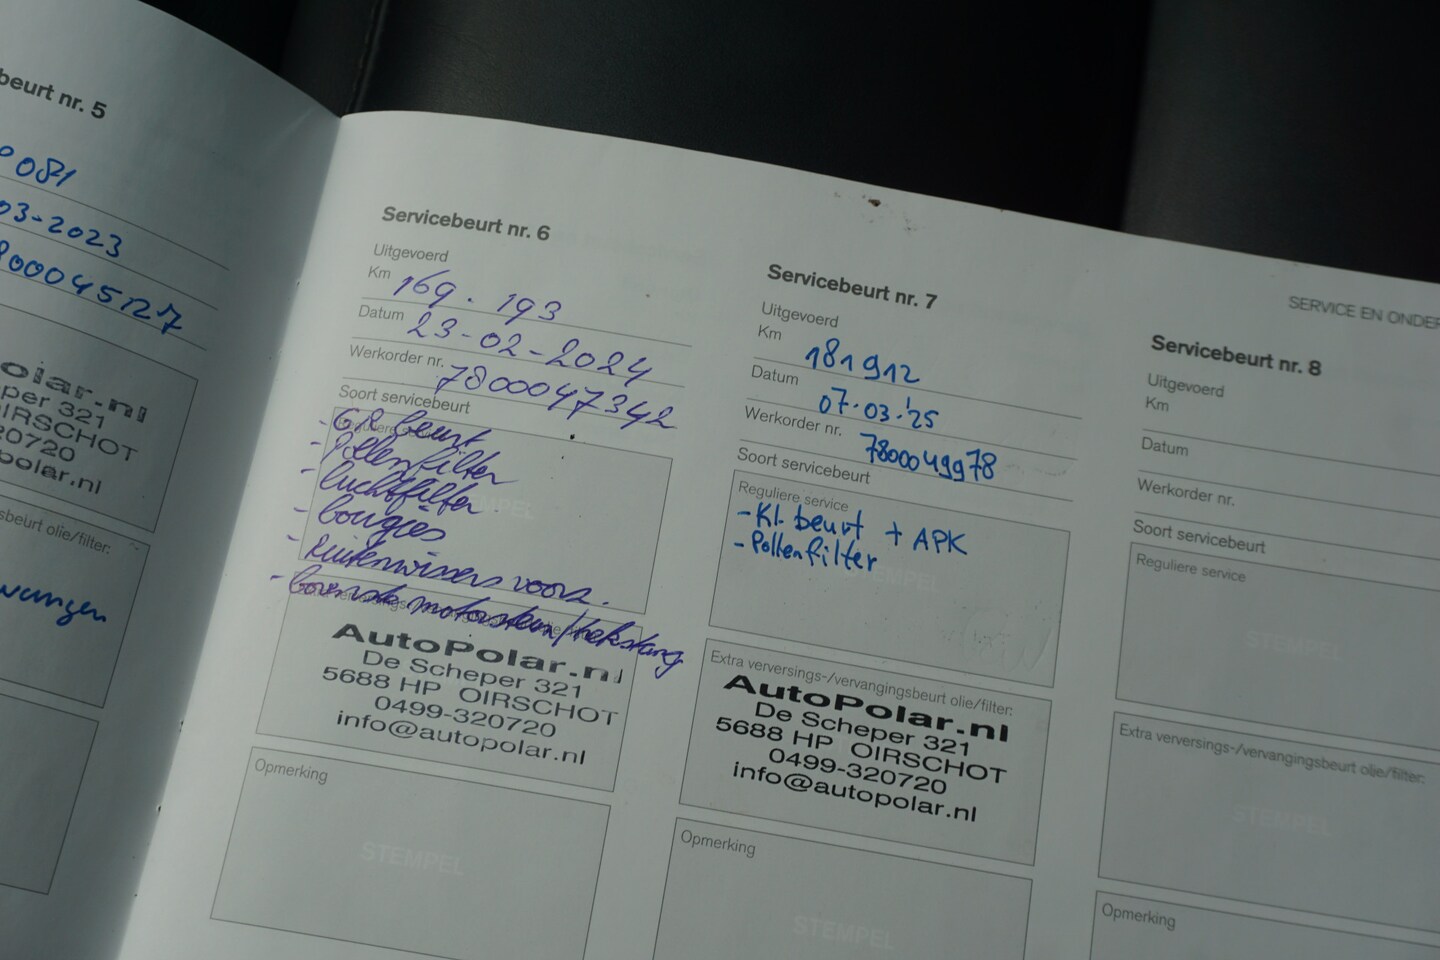 beurt nr. 5
081
03-2023
800045127
olar.nl
per 321
IRSCHOT
20720
polar.nl
sbeurt olie/filter:
Servicebeurt nr. 6
Uitgevoerd
Km 169.193
Datum 23-02-2024
Werkorder nr. 7800047342
Soort servicebeurt
Reguliere service
- GR beurt
- Pollenfilter
- Luchtfilter
- bougies
- Ruitenwissers voorz.
- bovenste motorsteun/trekstang
STEMPEL
AutoPolar.nl
De Scheper 321
5688 HP OIRSCHOT
0499-320720
info@autopolar.nl
Opmerking
STEMPEL
Servicebeurt nr. 7
Uitgevoerd
Km 181912
Datum 07-03-'25
Werkorder nr. 7800049978
Soort servicebeurt
Reguliere service
- Kl. beurt + APK
- Pollenfilter
STEMPEL
Extra verversings-/vervangingsbeurt olie/filter:
AutoPolar.nl
De Scheper 321
5688 HP OIRSCHOT
0499-320720
info@autopolar.nl
Opmerking
STEMPEL
SERVICE EN ONDER
Servicebeurt nr. 8
Uitgevoerd
Km
Datum
Werkorder nr.
Soort servicebeurt
Reguliere service
STEMPEL
Extra verversings-/vervangingsbeurt olie/filter:
STEMPEL
Opmerking